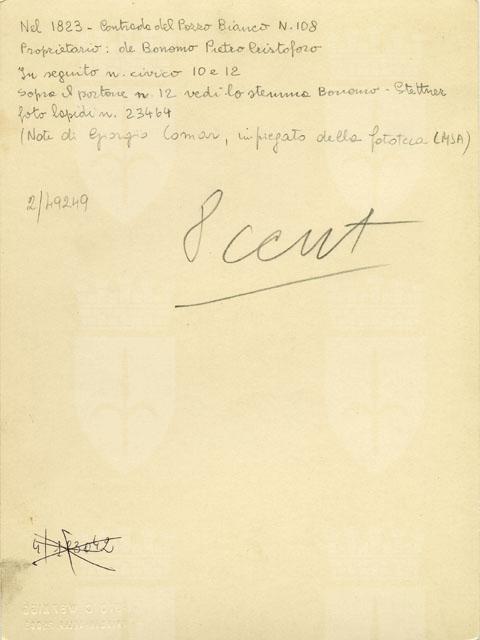 Nel 1823 - Contrada del Pozzo Bianco N. 108
Proprietario: de Bonomo Pietro Cristoforo
In seguito n. civico 10 e 12
sopra il portone n. 12 vedi lo stemma Bonomo - Stettner
foto lapidi n. 23464
(Note di Giorgio Comar, impiegato della fototeca (MSA)
2/49249
8 cent